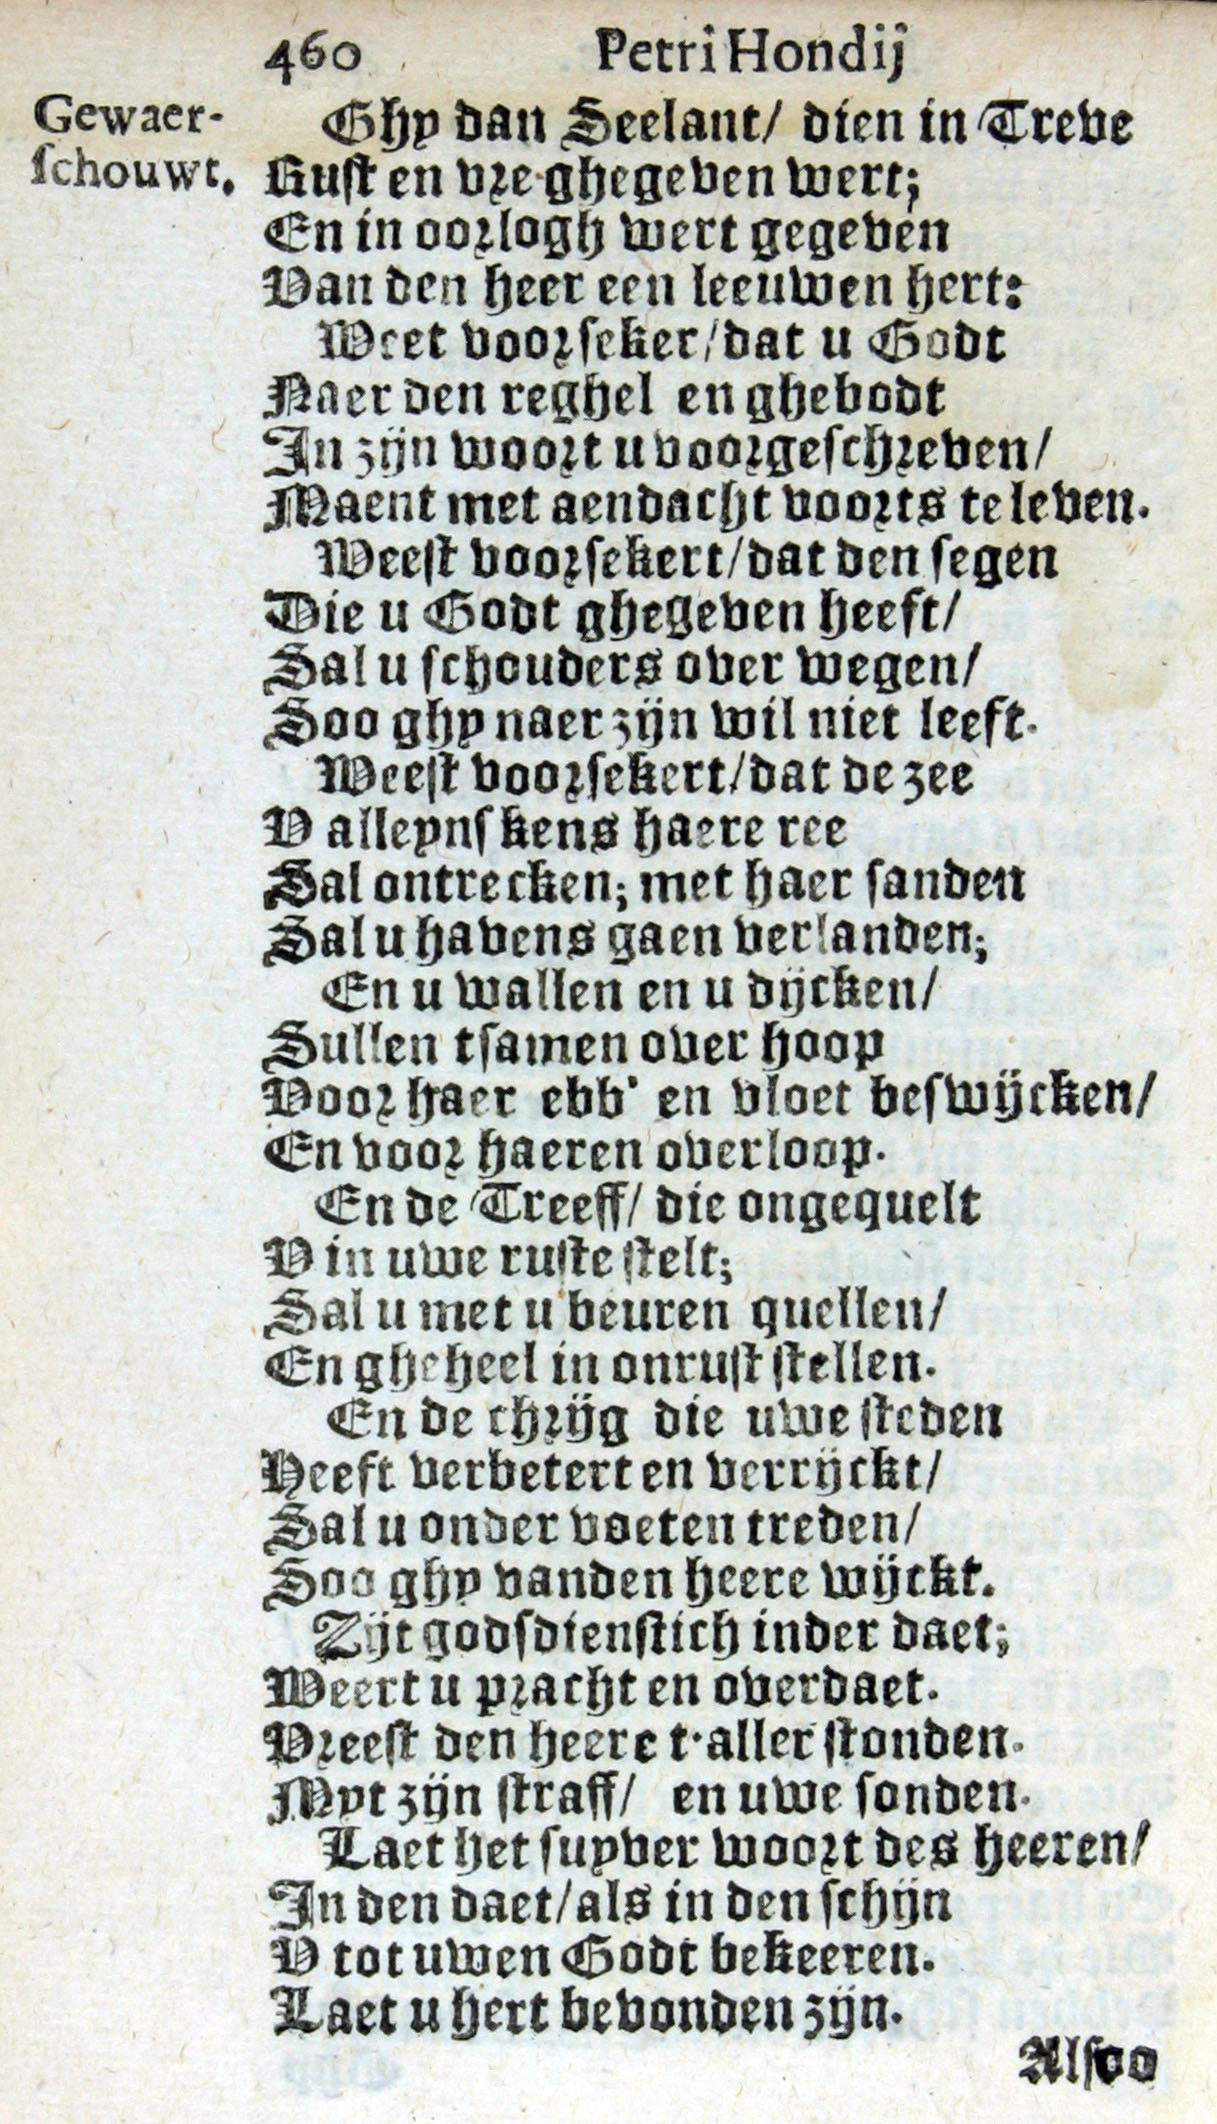 460 Petri Hondij
Gewaer-
ſchouwt.
Ghy dan Seelant/ dien in Treve
Rust en vre ghegeven wert;
En in oorlogh wert gegeven
Van den heer een leeuwen hert:
Weet voorseker/dat u Godt
Naer den reghel en ghebodt
In zijn woort u voorgeschreven/
Maent met aendacht voorts te leven.
Weest voorsekert/dat den segen
Die u Godt ghegeven heeft/
Sal u schouders over wegen/
Soo ghy naer zijn wil niet leeft.
Weest voorsekert/dat de zee
V alleynskens haere ree
Sal ontrecken; met haer sanden
Sal u havens gaen verlanden;
En u wallen en u dijcken/
Sullen tsamen over hoop
Voor haer ebb' en vloet beswijcken/
En voor haeren overloop.
En de Treeff/ die ongequelt
V in uwe ruste stelt;
Sal u met u beuren quellen/
En gheheel in onrust stellen.
En de chrijg die uwe steden
Heeft verbetert en verrijckt/
Sal u onder voeten treden/
Soo ghy vanden heere wijckt.
Zijt godsdienstich inder daet;
Weert u pracht en overdaet.
Vreest den heere t'aller stonden.
Myt zijn straff/ en uwe sonden.
Laet het suyver woort des heeren/
In den daet/als in den schijn
V tot uwen Godt bekeeren.
Laet u hert bevonden zijn.
Alsoo